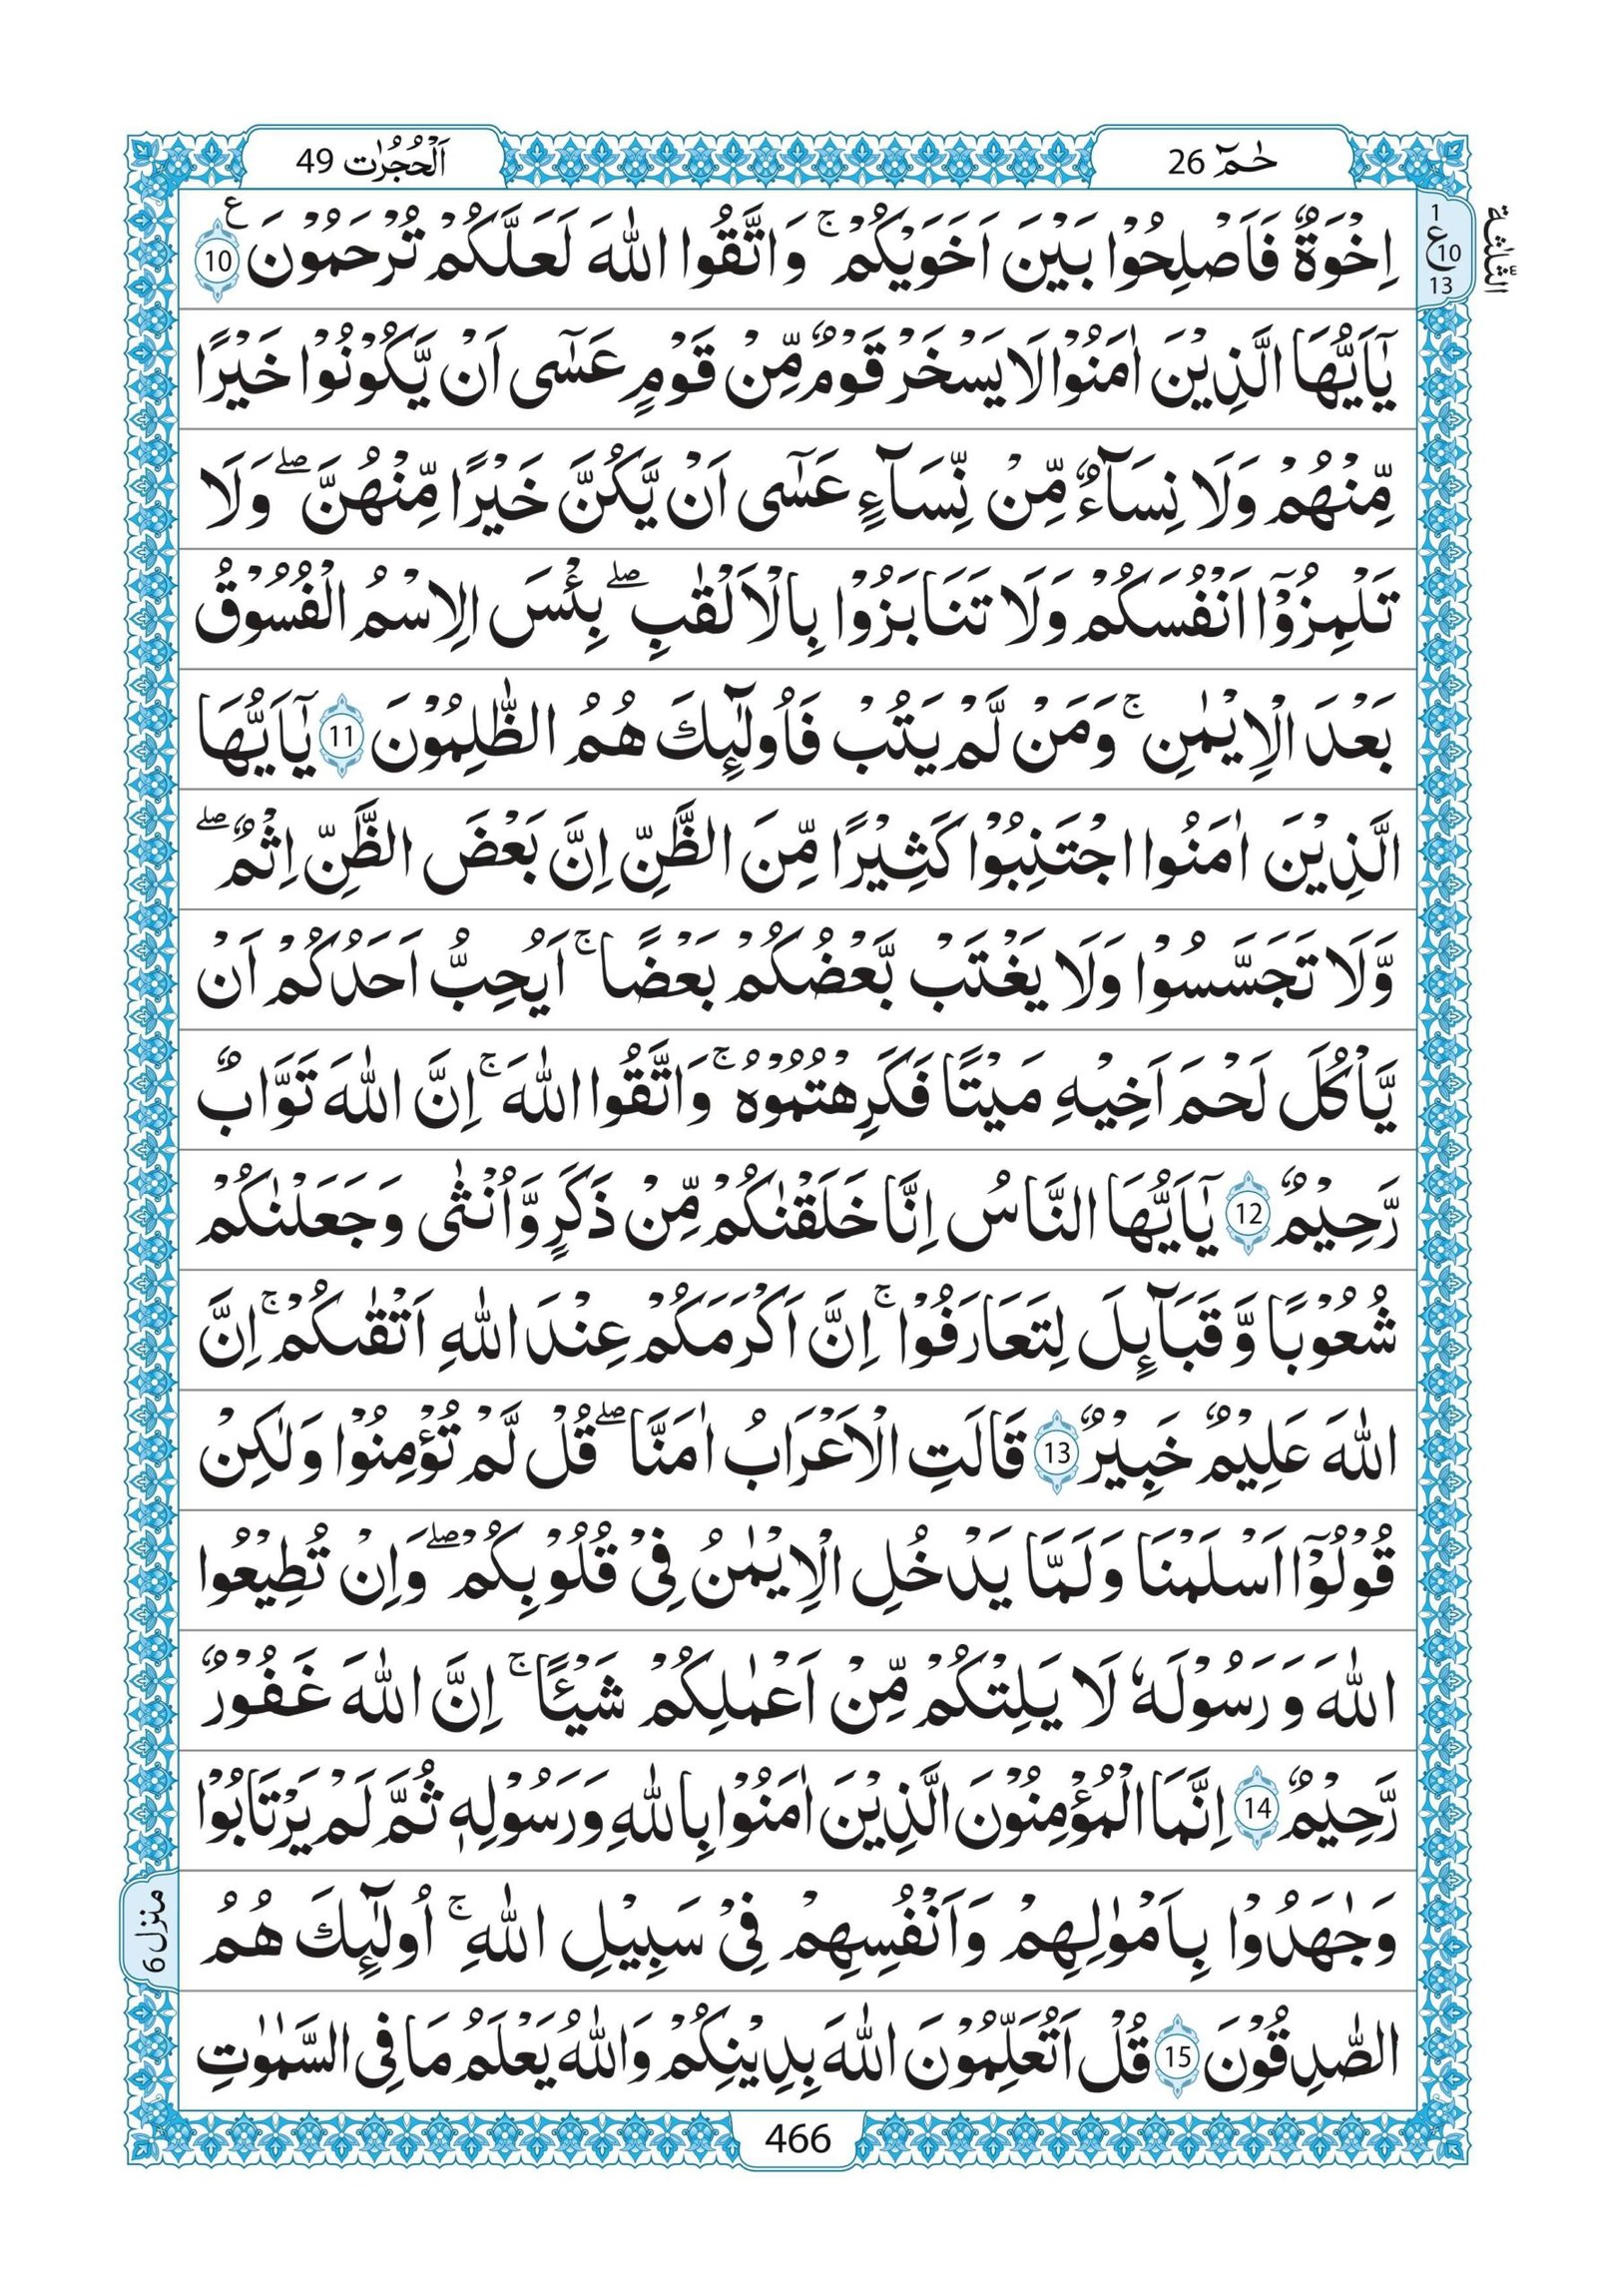 حٰمٓ 26
اَلْحُجُرٰت 49
اِخْوَةٌ فَاَصْلِحُوْا بَيْنَ اَخَوَيْكُمْ ۚ وَاتَّقُوا اللّٰهَ لَعَلَّكُمْ تُرْحَمُوْنَ ࣖ 10
يٰٓاَيُّهَا الَّذِيْنَ اٰمَنُوْا لَا يَسْخَرْ قَوْمٌ مِّنْ قَوْمٍ عَسٰٓى اَنْ يَّكُوْنُوْا خَيْرًا
مِّنْهُمْ وَلَا نِسَآءٌ مِّنْ نِّسَآءٍ عَسٰٓى اَنْ يَّكُنَّ خَيْرًا مِّنْهُنَّ ۖ وَلَا
تَلْمِزُوْٓا اَنْفُسَكُمْ وَلَا تَنَابَزُوْا بِالْاَلْقٰبِ ۖ بِئْسَ الِاسْمُ الْفُسُوْقُ
بَعْدَ الْاِيْمٰنِ ۚ وَمَنْ لَّمْ يَتُبْ فَاُولٰٓئِكَ هُمُ الظّٰلِمُوْنَ 11 يٰٓاَيُّهَا
الَّذِيْنَ اٰمَنُوا اجْتَنِبُوْا كَثِيْرًا مِّنَ الظَّنِّ اِنَّ بَعْضَ الظَّنِّ اِثْمٌ ۖ
وَّلَا تَجَسَّسُوْا وَلَا يَغْتَبْ بَّعْضُكُمْ بَعْضًا ۚ اَيُحِبُّ اَحَدُكُمْ اَنْ
يَّاْكُلَ لَحْمَ اَخِيْهِ مَيْتًا فَكَرِهْتُمُوْهُ ۚ وَاتَّقُوا اللّٰهَ ۚ اِنَّ اللّٰهَ تَوَّابٌ
رَّحِيْمٌ 12 يٰٓاَيُّهَا النَّاسُ اِنَّا خَلَقْنٰكُمْ مِّنْ ذَكَرٍ وَّاُنْثٰى وَجَعَلْنٰكُمْ
شُعُوْبًا وَّقَبَآئِلَ لِتَعَارَفُوْا ۚ اِنَّ اَكْرَمَكُمْ عِنْدَ اللّٰهِ اَتْقٰىكُمْ ۚ اِنَّ
اللّٰهَ عَلِيْمٌ خَبِيْرٌ 13 قَالَتِ الْاَعْرَابُ اٰمَنَّا ۖ قُلْ لَّمْ تُؤْمِنُوْا وَلٰكِنْ
قُوْلُوْٓا اَسْلَمْنَا وَلَمَّا يَدْخُلِ الْاِيْمٰنُ فِيْ قُلُوْبِكُمْ ۖ وَاِنْ تُطِيْعُوا
اللّٰهَ وَرَسُوْلَهٗ لَا يَلِتْكُمْ مِّنْ اَعْمٰلِكُمْ شَيْـًٔا ۚ اِنَّ اللّٰهَ غَفُوْرٌ
رَّحِيْمٌ 14 اِنَّمَا الْمُؤْمِنُوْنَ الَّذِيْنَ اٰمَنُوْا بِاللّٰهِ وَرَسُوْلِهٖ ثُمَّ لَمْ يَرْتَابُوْا
وَجٰهَدُوْا بِاَمْوٰلِهِمْ وَاَنْفُسِهِمْ فِيْ سَبِيْلِ اللّٰهِ ۚ اُولٰٓئِكَ هُمُ
الصّٰدِقُوْنَ 15 قُلْ اَتُعَلِّمُوْنَ اللّٰهَ بِدِيْنِكُمْ وَاللّٰهُ يَعْلَمُ مَا فِى السَّمٰوٰتِ
1
ع 10
13
الثلٰثة
منزل 6
466